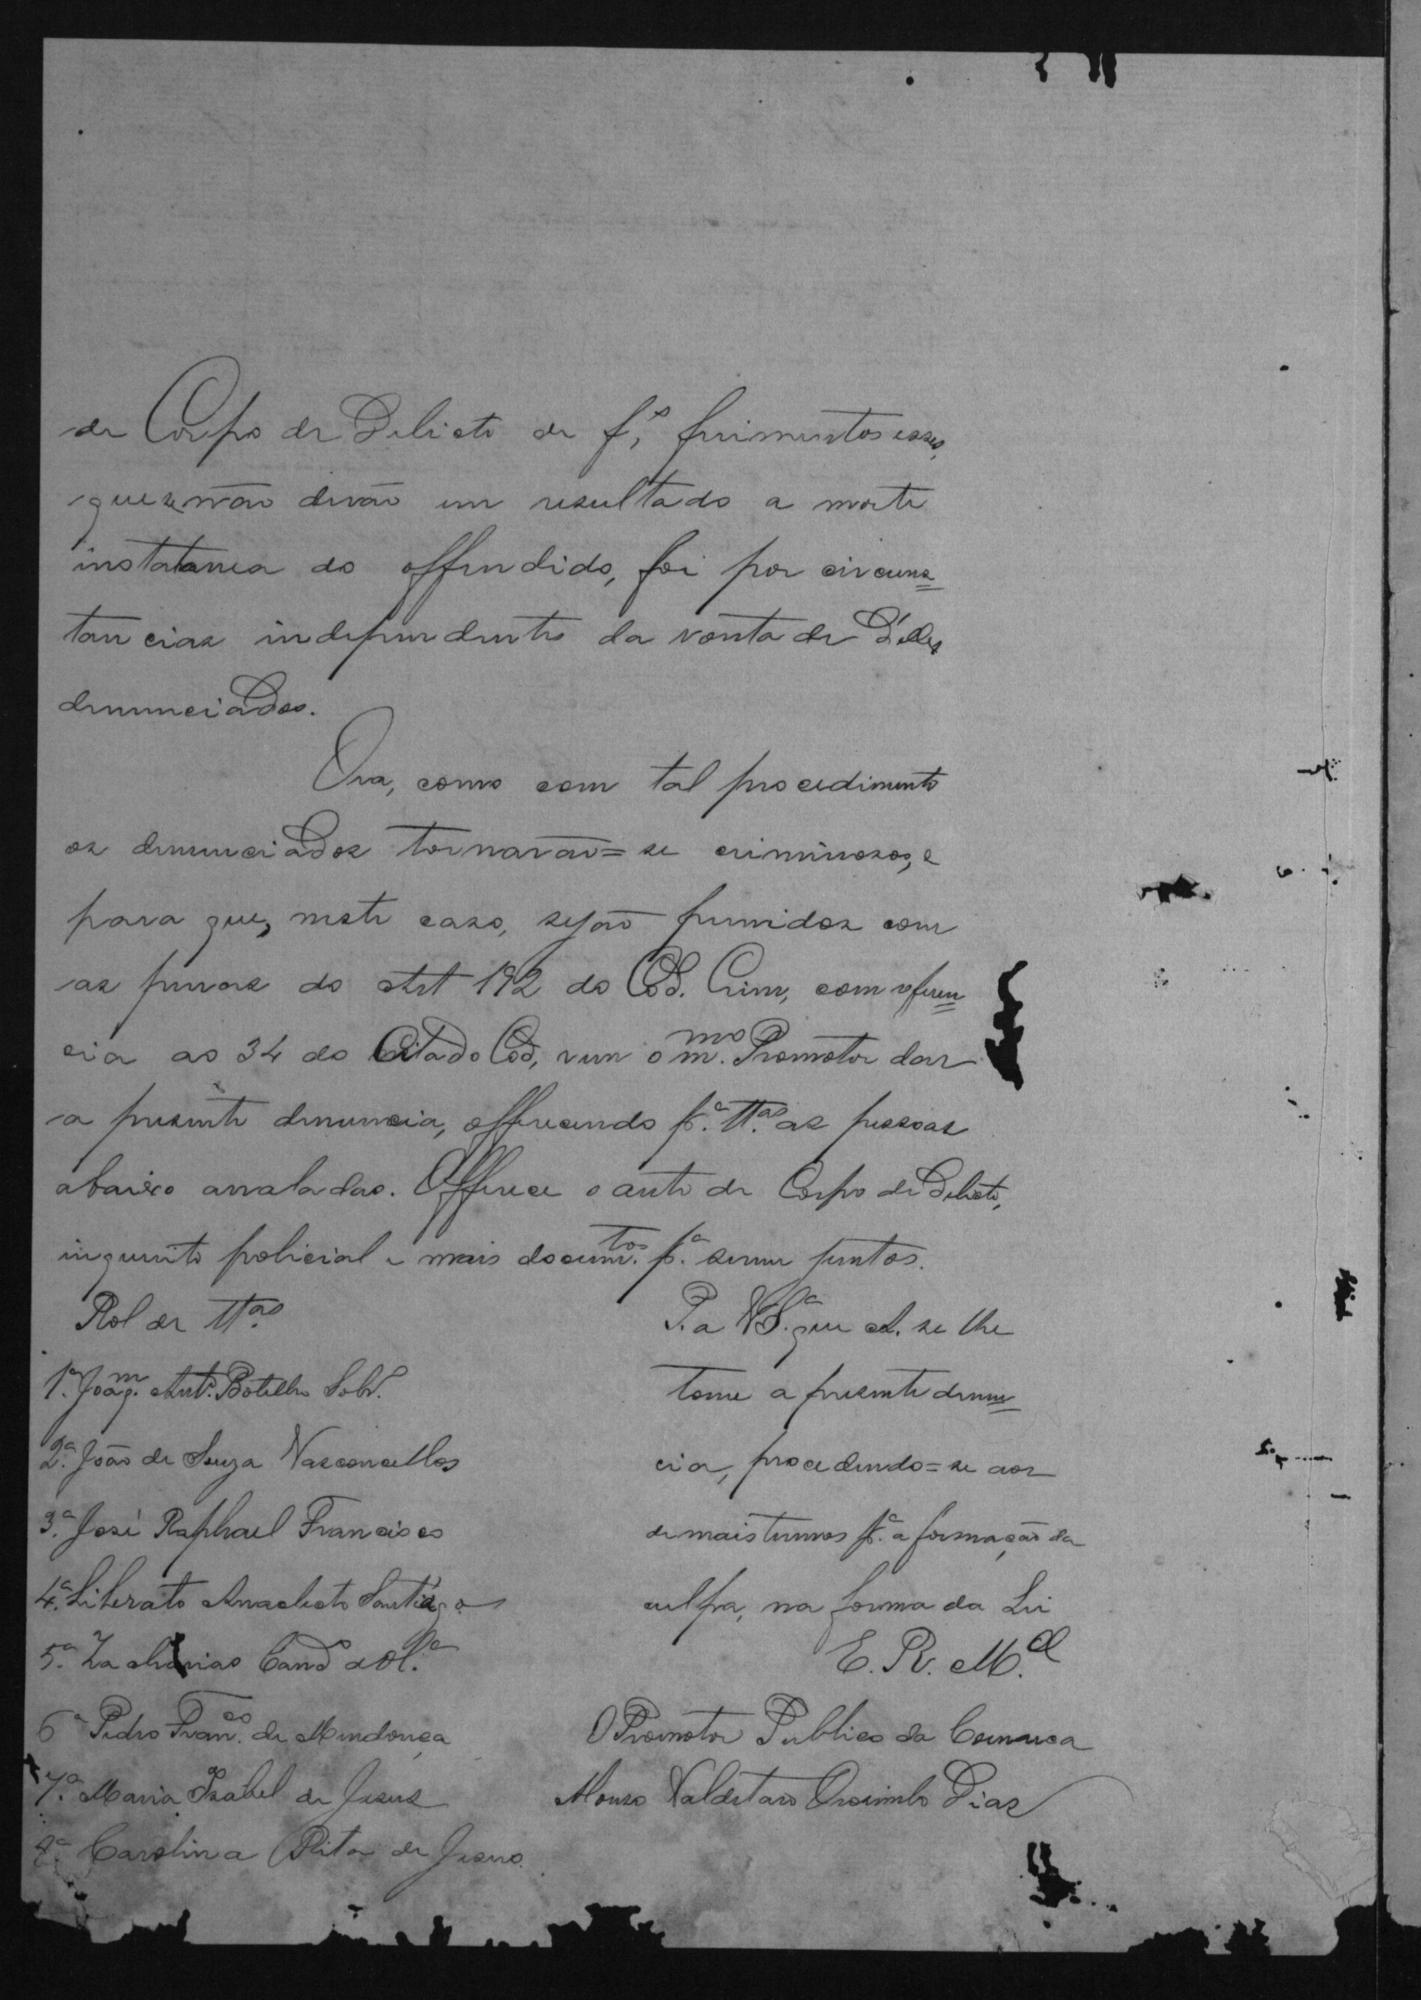 de Corpo de Delicto de f.s, ferimentos esses,
que se não derão em resultado a morte
instatanea do offendido, foi por circuns=
tancias independente da vontade d'elles
denunciados.
Ora, como com tal procedimento
os denunciados tornarão=se criminosos, e
para que, neste caso, sejão punidos com
as penas do Art 192 do Cod. Crim, com referen=
cia ao 34 do citado Cod, vem o m.mo Promotor dar
a presente denuncia, offerecendo p.a tt.as as pessoas
abaixo arroladas. Offerece o auto de Corpo de Delicto,
inquerito policial e mais docum.tos p.a serem juntos.
Rol de tt.as
1.a Joaq.m Ant.o Botelho Sobr.o
2.a João de Souza Vasconcellos
3.a José Raphael Francisco
4.a Liberato Anacleto Santiago
5.a Zacharias Cand.o de Ol.a
6.a Pedro Fran.co de Mendonça
7.a Maria Izabel de Jesus
8.a Carolina Rita de Jesus.
P. a V.S.a que A. se lhe
tome a presente denun=
cia, procedendo=se aos
demais termos p.a a formação da
culpa, na forma da Lei
E. R. M.ce
O Promotor Publico da Comarca
Afonso Valdetaro Orosimbo Dias